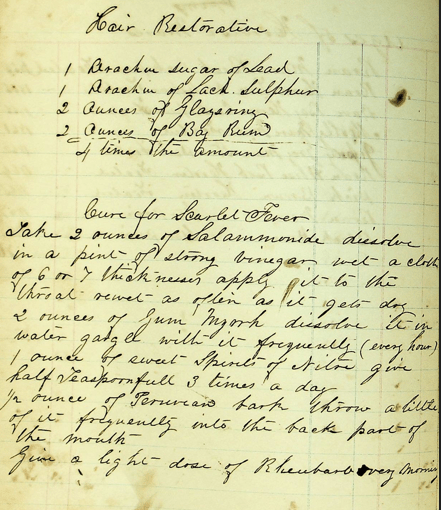 Hair Restorative
1 Drachm sugar of Lead
1 Drachm of Lack. Sulphur
2 Ounces of Glasering
2 Ounces of Bay Rum
4 times the amount
Cure for Scarlet Fever
Take 2 ounces of Salammonide dissolve
in a pint of strong vinegar wet a cloth
of 6 or 7 thicknesses apply it to the
throat rewet as often as it gets dry
2 ounces of Gum Myrrh dissolve it in
water gargle with it frequently (every hour)
1 ounce of sweet Spirits of Nitre give
half Teaspoonfull 3 times a day
½ ounce of Peruvian bark throw a little
of it frequently into the back part of
the mouth
Give a light dose of Rheubarb every morning